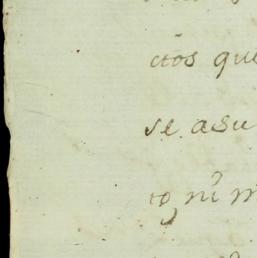 ctos que
se asu
to, ni m